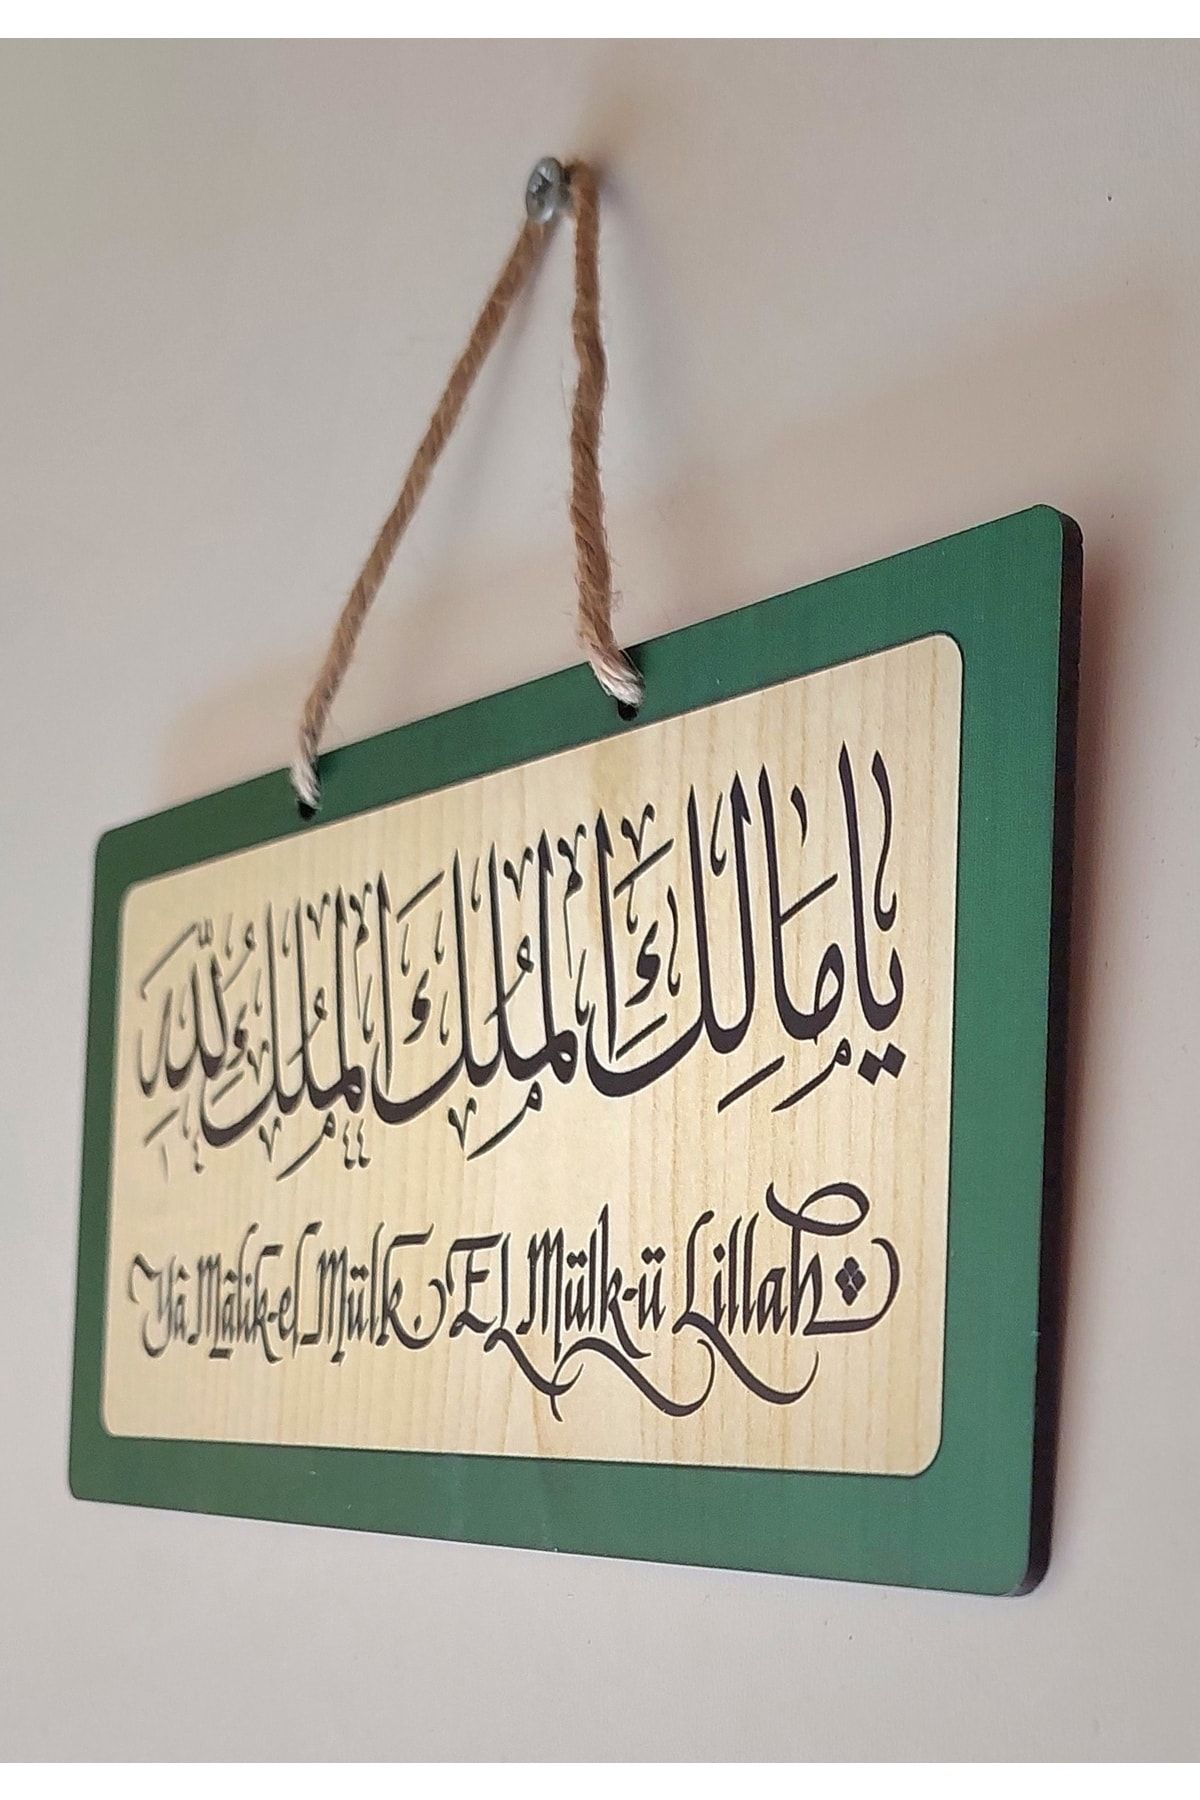 يا مالك الملك الملك لله
Yâ Mâlik-el Mülk. El Mülk-ü Lillah